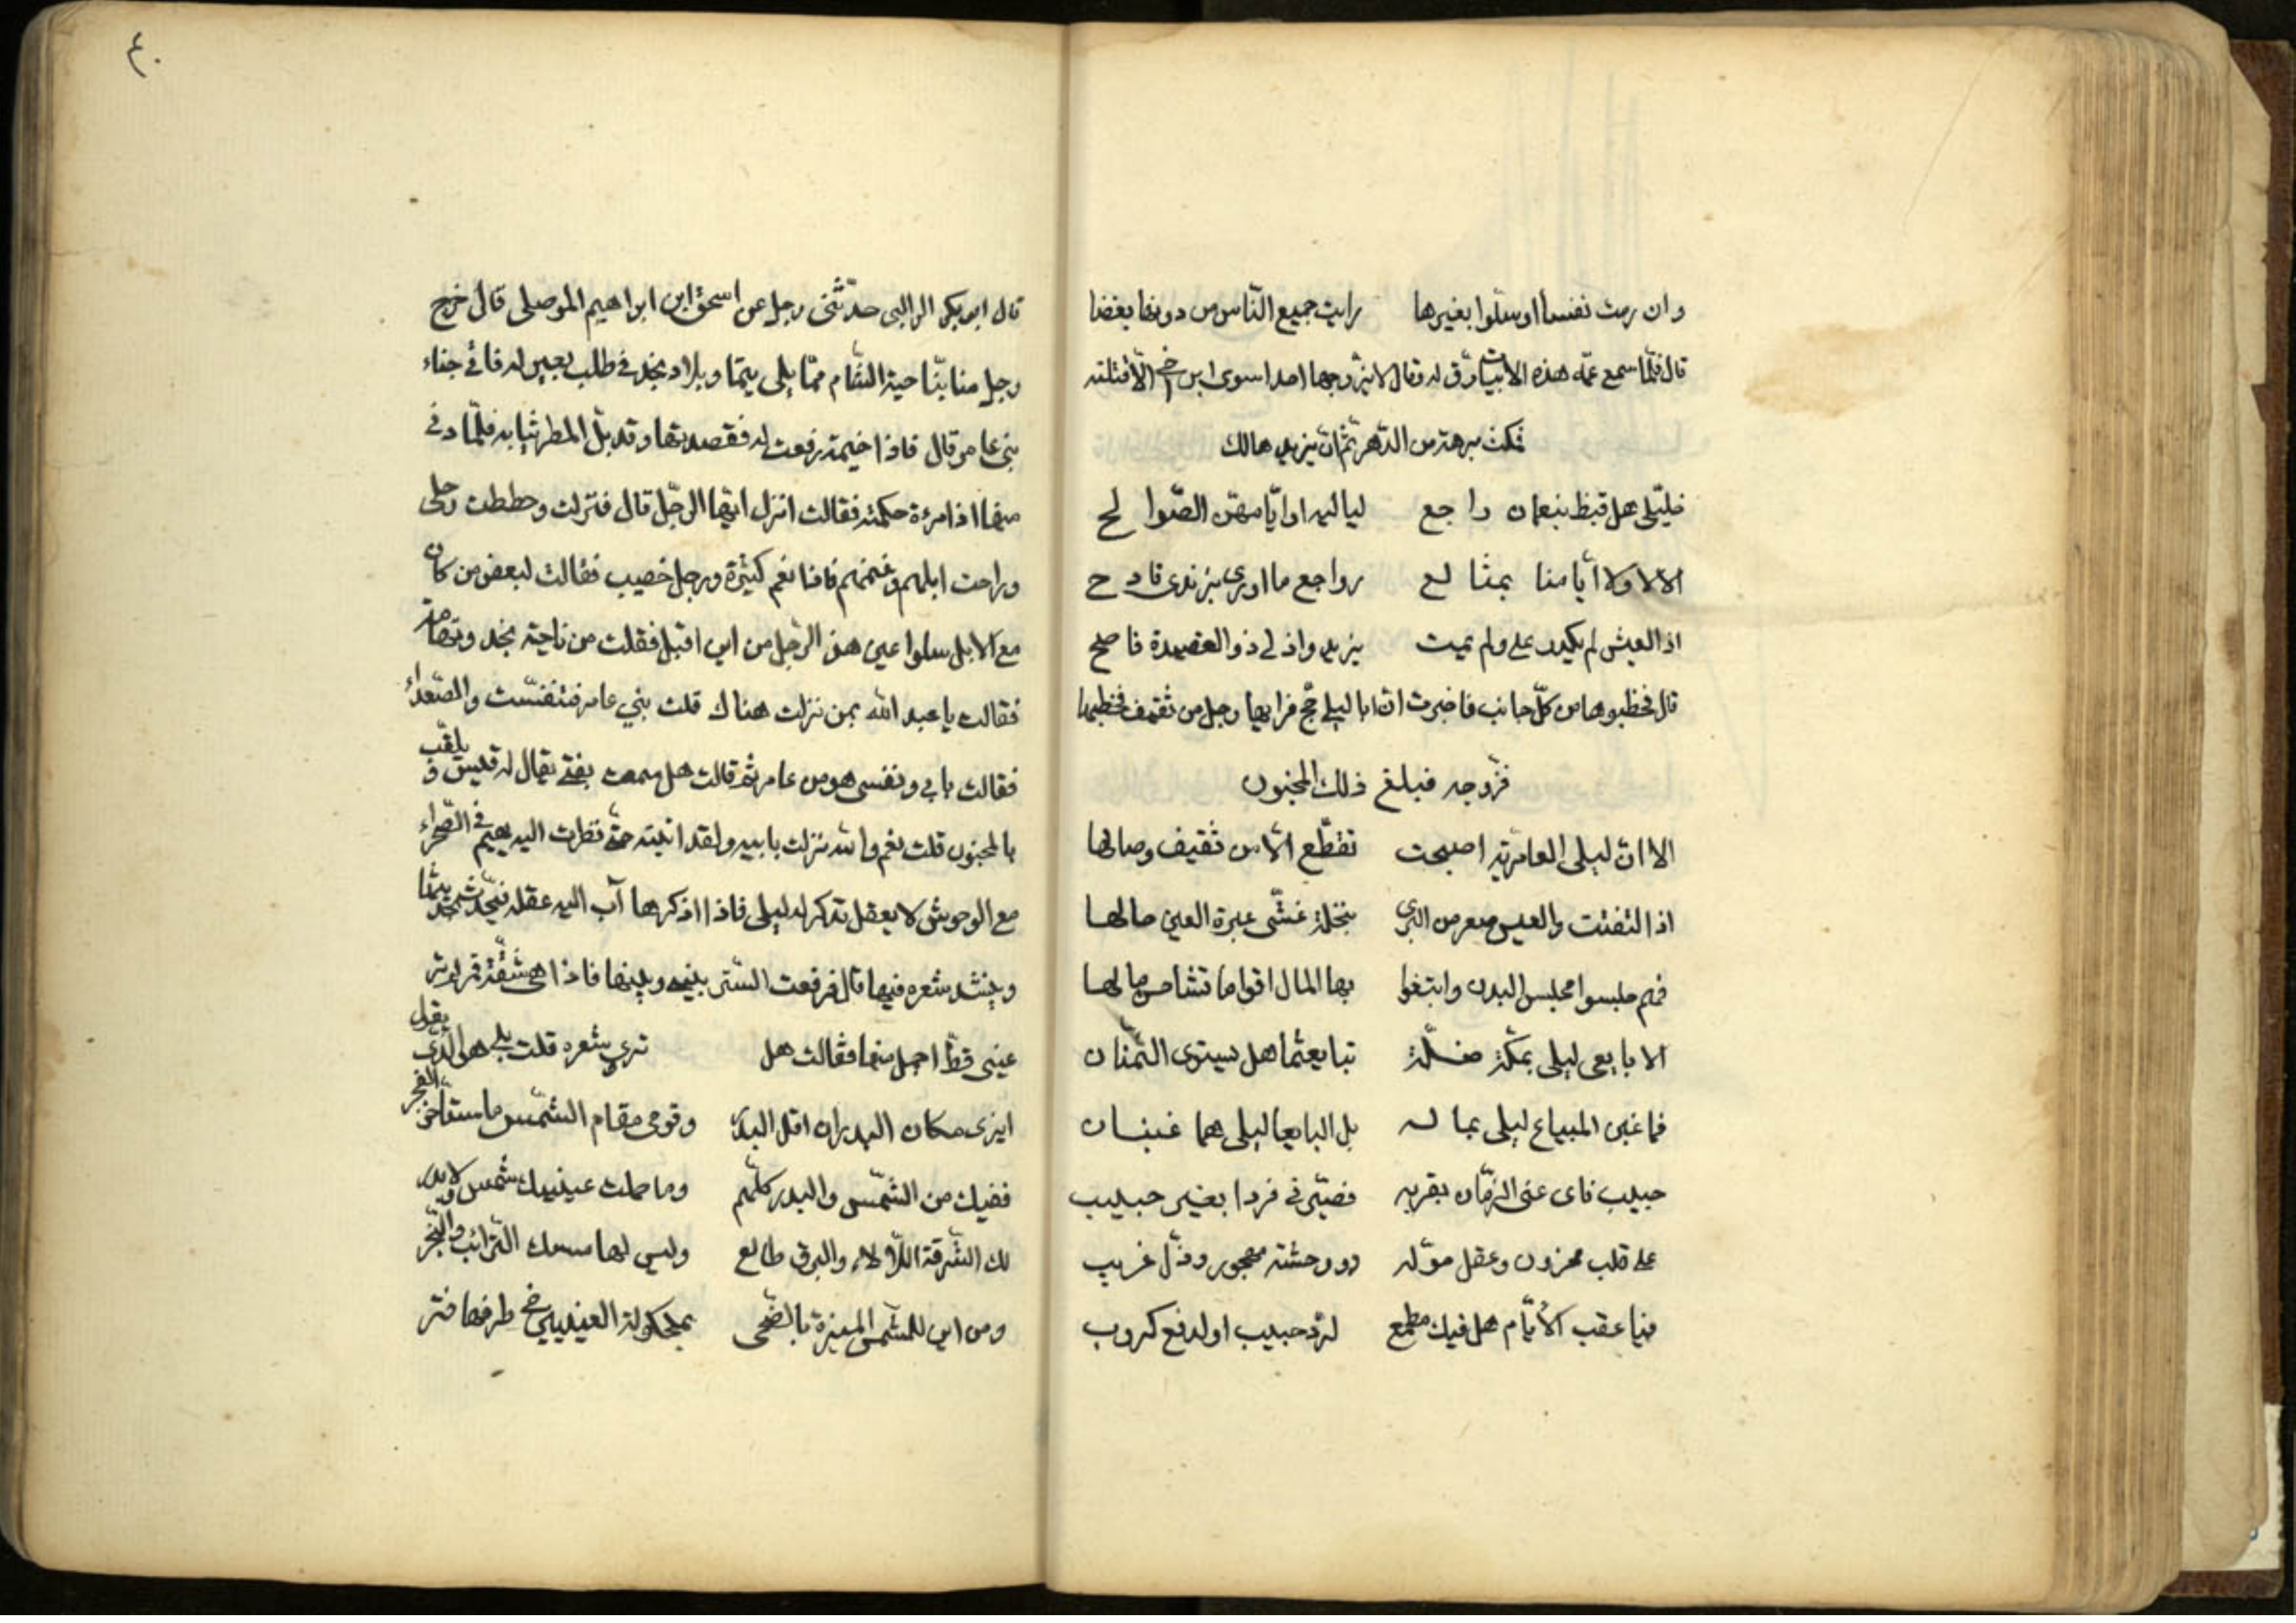 وان رمت نفسا او سلوا بغيرها رايت جميع الناس من دونها بغضا
قال فلمّا سمع عمّه هذه الابيات رق له وقال لا يتزوجها احدا سوى ابن اخي الّا قتلته
فمكث برهة من الدّهر ثم انّ يزيد هالك
خليّلى هل قيظ بنعمان راجع لياليه او ايّامهنّ الصّوالح
الا لا ولا أيامنا بمتالع رواجع ما اورى بزندى قادح
اذ العيش لم يكدر على ولم يمت يزيد واذ لى ذو العقيدة ناصح
قال فخطبوها من كلّ جانب فاخبرت انّ ابا ليلى حج فرايها رجل من ثقيف فخطبها
فزوجه فبلغ ذلك المجنون
الا انّ ليلى العامرية اصبحت تقطّع الّا من ثقيف وصالها
اذا التفتت والعيس صعر من البرى بنخلة غشّى عبرة العين حالها
فهم حبسوا محبس البدن وابتغوا بها المال اقواما تشاحس مالها
الا بايعى ليلى بمكّة ضلّة تبايعتما هل يستوى الثّمنان
فما غبن المبياع ليلى بماله بل البايعا ليلى هما غبنان
حبيب ناى عنى الزمّان بقربه فصيّرنى فردا بغير حبيب
على قلب محزون وعقل مولّه ووحشة مهجور وذلّ غريب
فيا عقب الأيّام هل فيك مطمع لردّ حبيب او لدفع كروب
٤٠
قال ابو بكر الوالبى حدّثنى رجل عن اسحق ابن ابراهيم الموصلى قال خرج
رجل منا بنّاحية الشّام ممّا يلى تيما وبلاد نجد فى طلب بعير له فاتى جناء
بنى عامر قال فاذا خيمة رفعت له فقصدتها وقد بلّ المطر ثيابه فلمّا دنى
منها اذا امرءة حكمته فقالت انزل ايّها الرّجل قال فنزلت وحططت رحلى
وراحت ابلهم وغنمهم فاذا نعم كثيرة ورجل خصيب فقالت لبعض من كان
مع الابل سلوا عين هذ الرّجل من اين اقبل فقلت من ناحية نجد وتهامة
فقالت يا عبد الله بمن نزلت هناك قلت ببنى عامر فتنفسّت والصّعداء
فقالت بابى ونفسى هو من عامر ثم قالت هل سمعت بفتى يقال له قيس ويلقب
بالمجنون قلت نعم والله نزلت بابيه ولقد اتيته حتّى نظرت اليه يهيم فى الصّحراء
مع الوحوش لا يعقل تذكر له ليلى فاذا اذكرها آب اليه عقله فيحدّث بحديثها
وينشد شعره فيها قال فرفعت السّتر بينى وبينها فاذا هى شقّة قمر لم تر
عينى قطّ اجمل منها فقالت هل تروى شعره قلت بلى هو الّذى يقول
انيرى مكان البدر ان افل البدر وقومى مقام الشّمس ما استأخر الفجر
ففيك من الشّمس والبدر كلّهم وما حملت عينيك شمس ولا بدر
لك الشّرقة اللّألاء والبرق طالع وليس لها منك التّرائب والنّحر
ومن اين للشّمس المنيرة بالضّحى بمكحولة العينين فى طرفها فتر